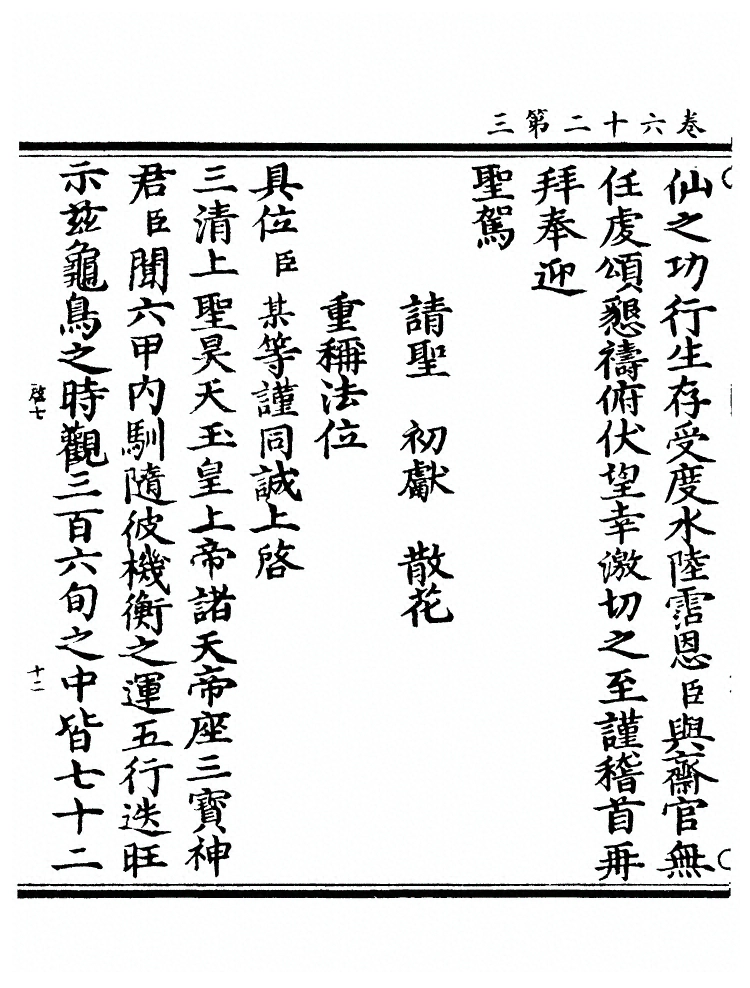 卷六十二第三
仙之功行生存受度水陸霑恩臣與齋官無
任虔頌懇禱俯伏望幸激切之至謹稽首再
拜奉迎
聖駕
請聖　初獻　散花
重稱法位
具位臣某等謹同誠上啓
三清上聖昊天玉皇上帝諸天帝座三寶神
君臣聞六甲内馴隨彼機衡之運五行迭旺
示兹龜鳥之時觀三百六旬之中皆七十二
啓七
十二